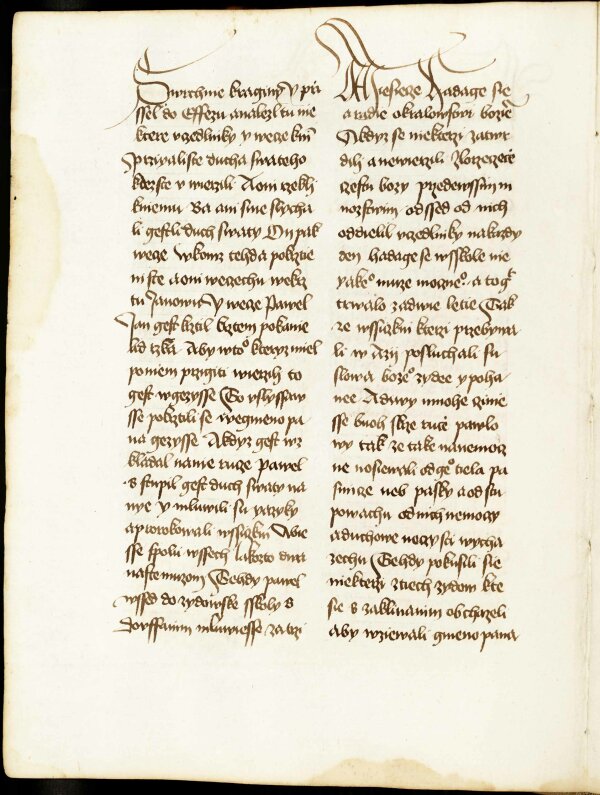 Swrchnie kraginy y prˀi
ssel do Effezu a nalezl tu nie
ktere vczedlniky y wecze knī
Przyaliste ducha swateho
kdyzste v wierzili A oni rzekli
kniemu Ba ani sme slychali
li gestli duch swaty On pak
wecze Wkom tehda pokrztie
ni ste a oni wecechu wekrz
tu Janowu Y wecze Pawel
Jan gest krztil krztem pokanie
lid rzka Aby wtoº kteryz miel
po niem przigiti wierzili to
gest wgezisse To vslyssaw
sse pokrztili se wegmeno pa
na gezisse A kdyz gest wz
kladal na nie rucze Pawel
s stupil gest duch swaty na
nye y mluwili su yazyky
a prorokowali wssiczkni A bie
sse spolu wssech lidzi yakoz dwa
nastemuzow Tehdy pawel
wssed do zydowske sskoly s
dorffanim mluwiesse za trzi
Miesiecze Hadage sie
a radie o kralowstwi bozie
A kdyz se niekterzi zatwr
dili a newierzili Zlorzeczece
czestu bozy przedewssim m
nozstwim odssed od nich
oddielil vczedlniky nakazdy
den hadage se wsskole nie
yakeº muze moczneº a togt
trwalo za dwie letie Tak
ze wssiczkni kterzi przebywa
li w Azij posluchali su
slowa bozieº zydee y poha
nee A diwy mnohe czinie
sse buoh skrze rucze pawlo
wy tak ze take na nemoc
ne nosiewali od geº tiela pa
smcze neb pasky a od stu
powachu od nich nemoczy
a duchowe noczysti wycha
zechu Tehdy pokusili sie
niekterzy ztiech zydow kte
rzi s zaklinanim obchazeli
aby wziewali gmeno pana